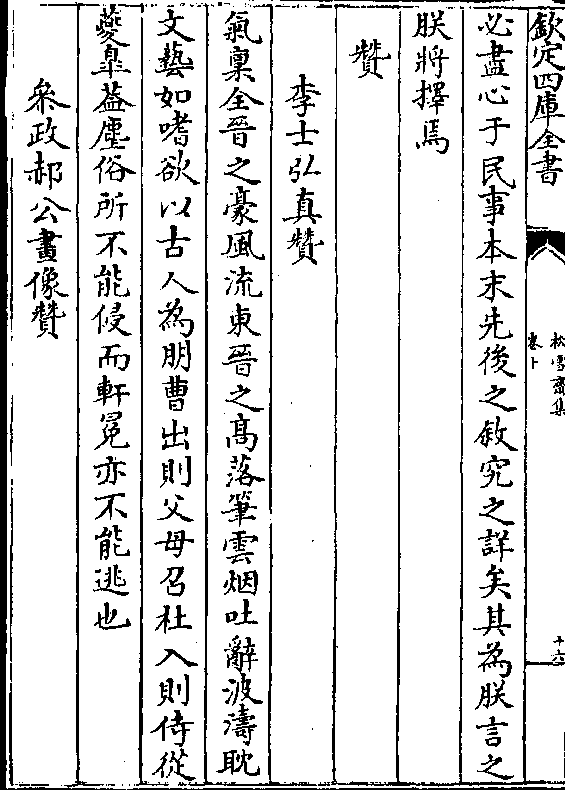 欽定四庫全書
松雪齋集
卷十
十六
必盡心于民事本末先後之敘究之詳矣其為朕言之
朕將擇焉
贊
李士弘真贊
氣稟全晉之豪風流東晉之髙落筆雲烟吐辭波濤耽
文藝如嗜欲以古人為朋曹出則父母召杜入則侍從
夔臯葢塵俗所不能侵而軒冕亦不能逃也
叅政郝公畫像贊